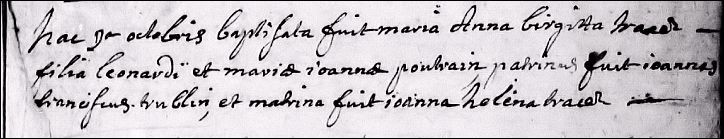 hac 9a octobris baptisata fuit maria Anna birgitta tracet
filia leonardi et mariæ ioannæ poutrain patrinus fuit ioannes
franciscus trublin, et matrina fuit ioanna helena tracet